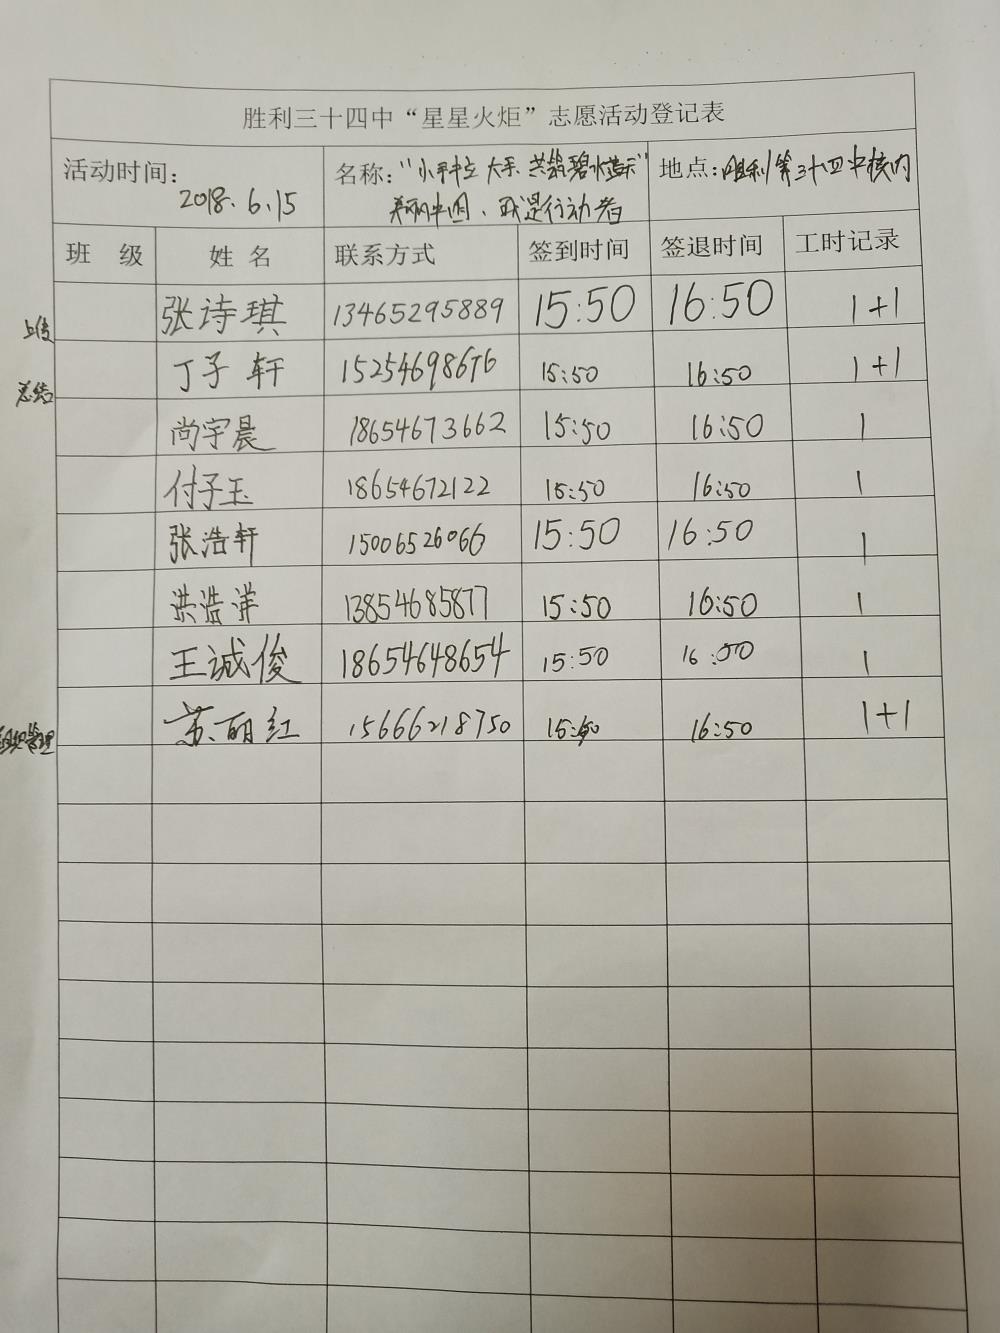 胜利三十四中“星星火炬”志愿活动登记表
活动时间： 2018.6.15 名称：“小手牵大手 共筑碧水蓝天” 地点：胜利第三十四中校内
美丽中国、我是行动者
班 级 姓 名 联系方式 签到时间 签退时间 工时记录
上传 张诗琪 13465295889 15:50 16:50 1+1
总结 丁子轩 15254698676 15:50 16:50 1+1
尚宇晨 18654673662 15:50 16:50 1
付子玉 18654672122 15:50 16:50 1
张浩轩 15006526066 15:50 16:50 1
洪浩洋 13854685877 15:50 16:50 1
王诚俊 18654648654 15:50 16:50 1
组织管理 苏丽红 15666218750 15:50 16:50 1+1